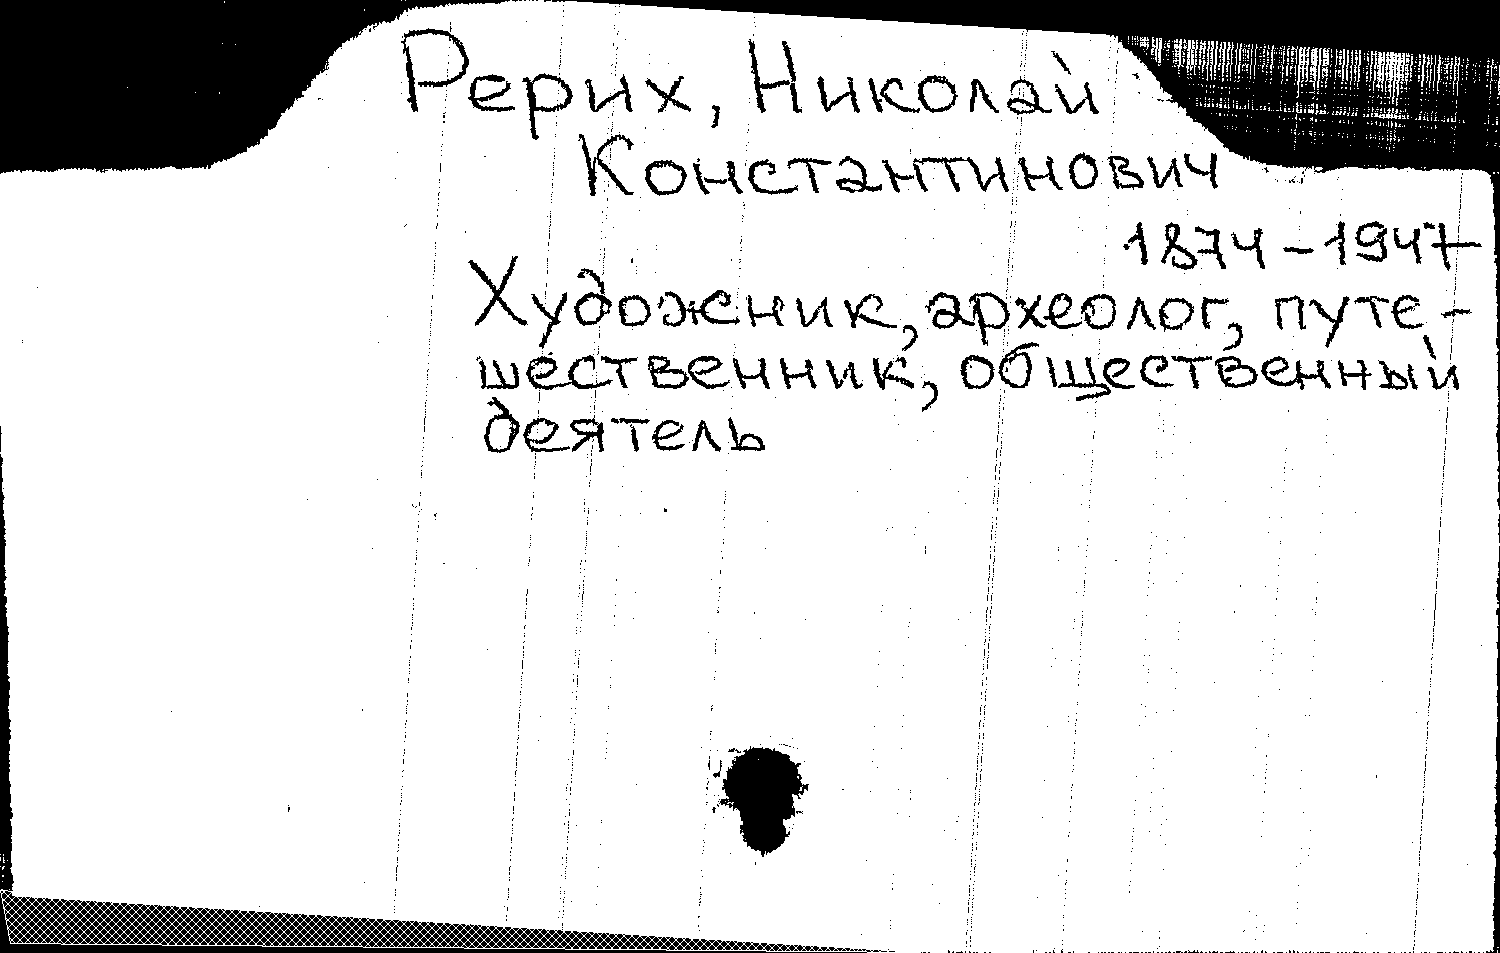 Рерих, Николай
Константинович
1874-1947
Художник, археолог, путе-
шественник, общественный
деятель